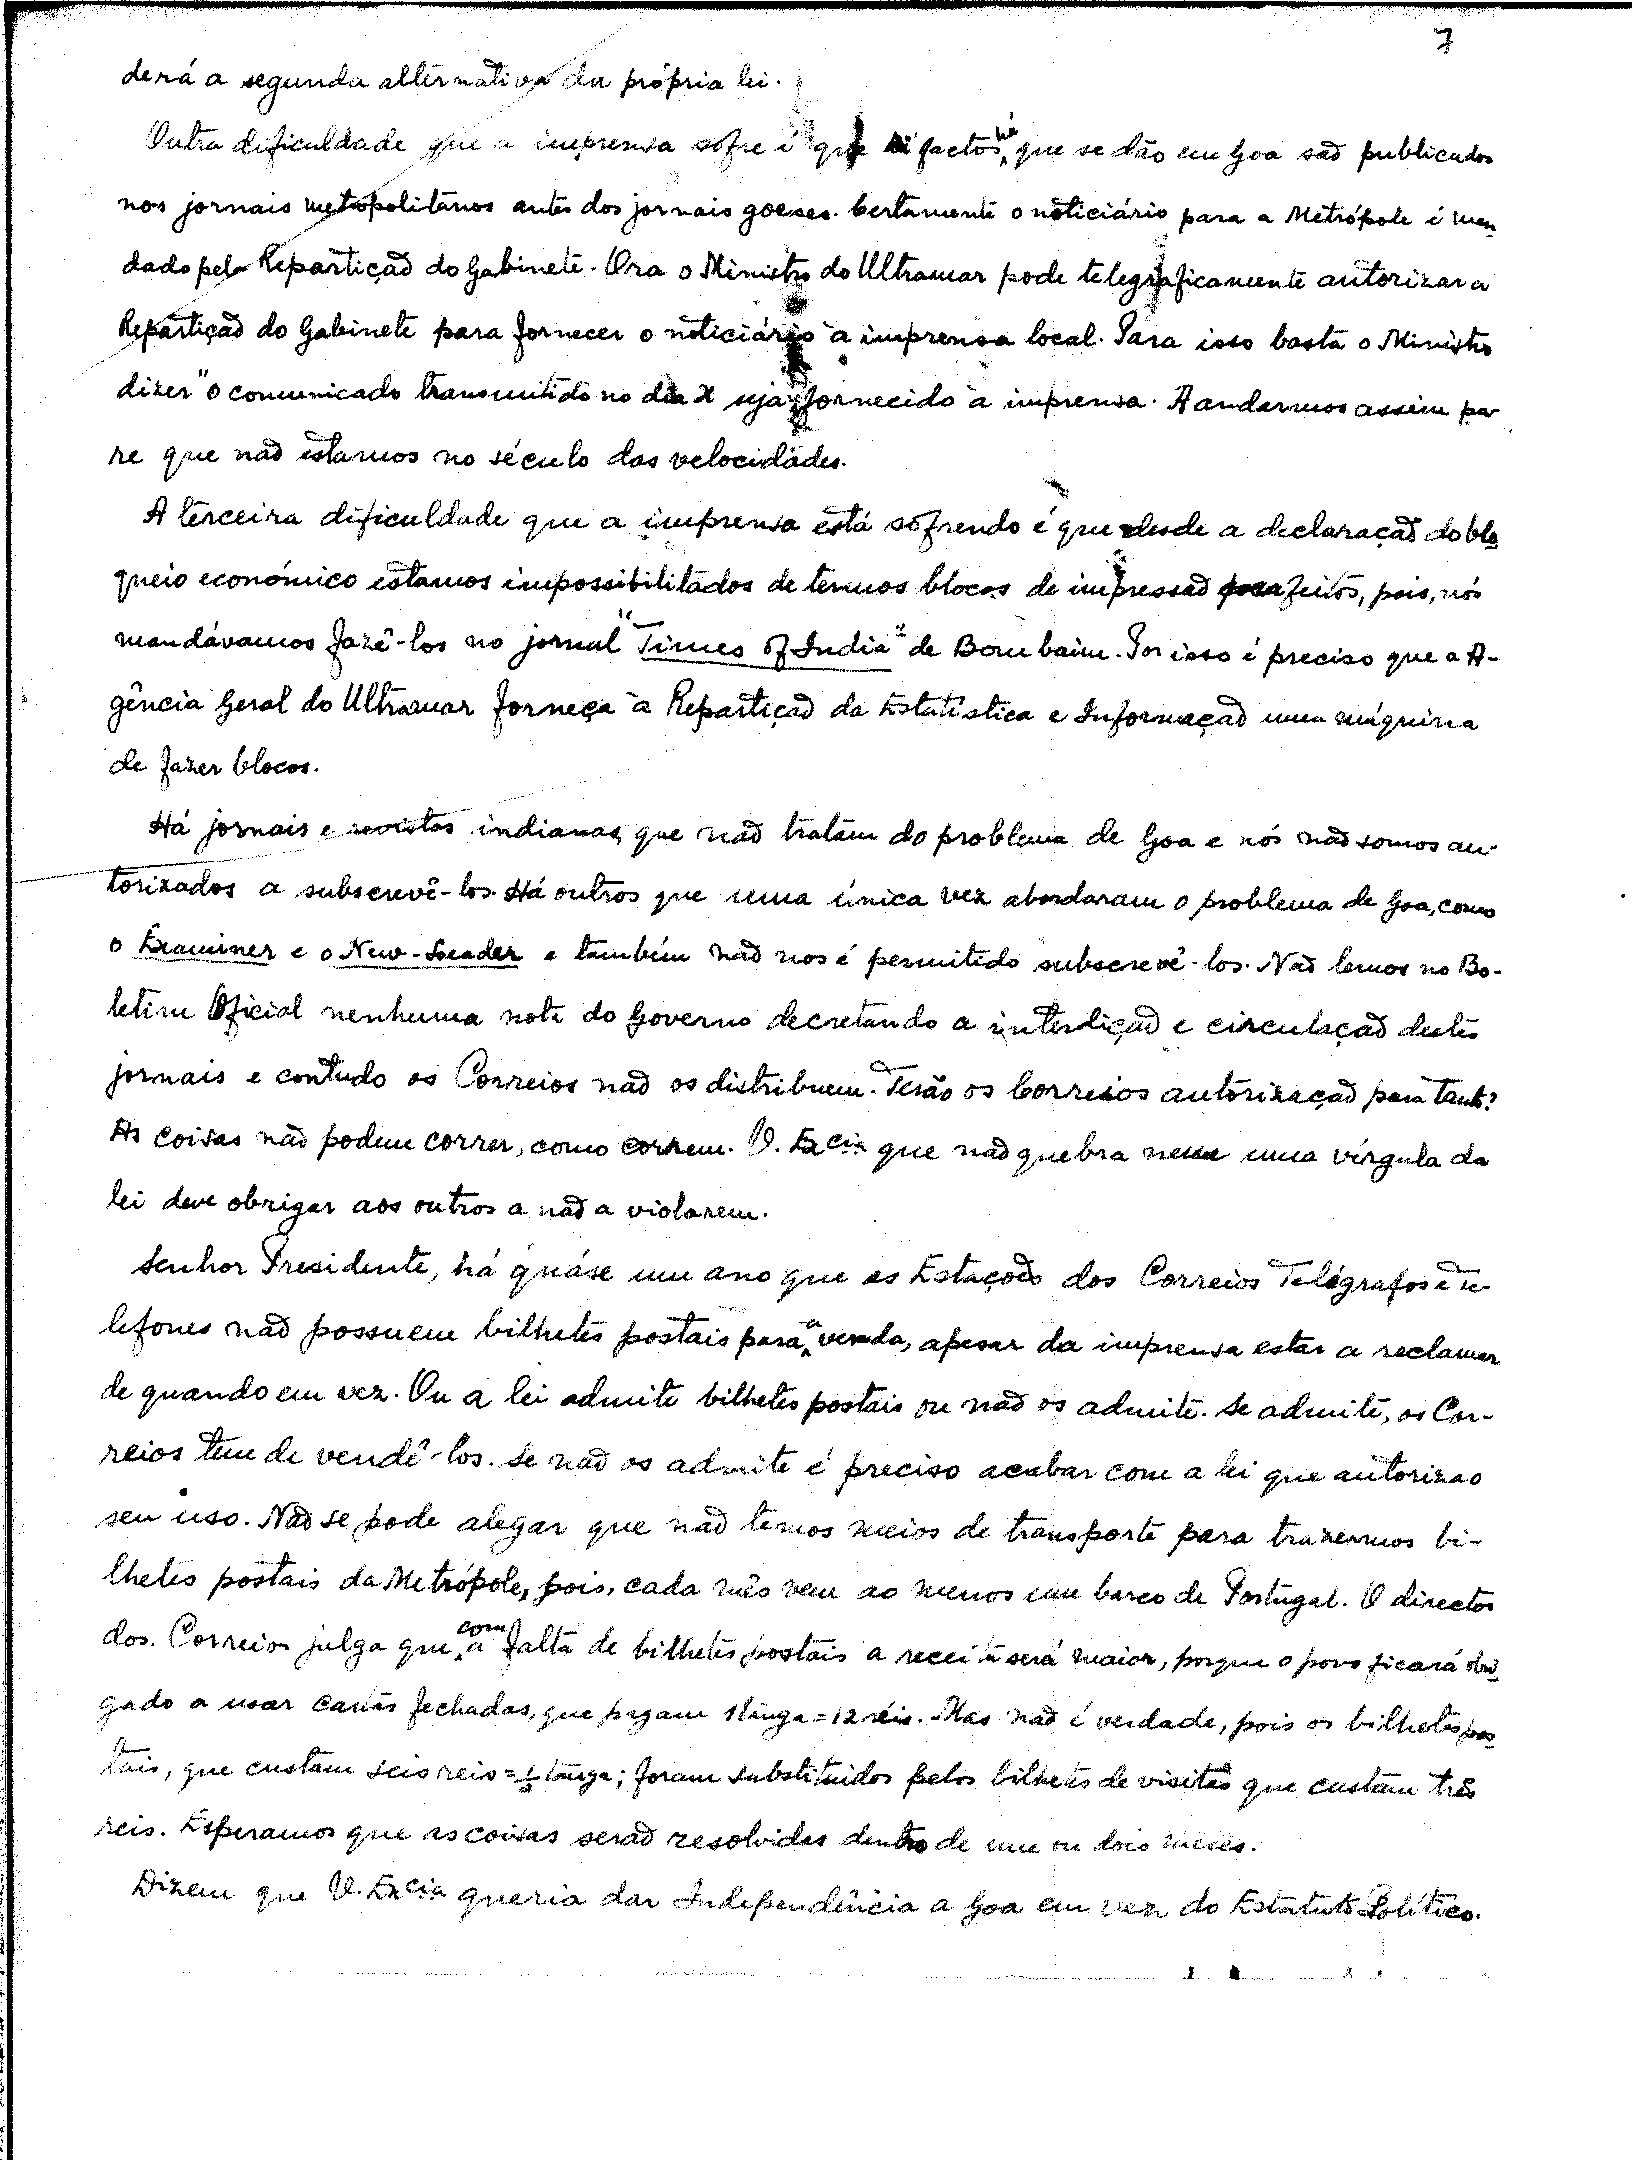 7
derá a segunda alternativa da própria lei.
Outra dificuldade que a imprensa sofre é que factos há, que se dão em Goa são publicados
nos jornais metropolitanos antes dos jornais goeses. Certamente o noticiário para a Metrópole é man
dado pela Repartição do Gabinete. Ora o Ministro do Ultramar pode telegraficamente autorizar a
Repartição do Gabinete para fornecer o noticiário à imprensa local. Para isso basta o Ministro
dizer "o comunicado transmitido no dia X seja fornecido à imprensa. A andarmos assim pa
re que não estamos no século das velocidades.
A terceira dificuldade que a imprensa está sofrendo é que desde a declaração do blo
queio económico estamos impossibilitados de termos blocos de impressão feitos, pois, nós
mandávamos fazê-los no jornal "Times of India" de Bombaim. Por isso é preciso que a A-
gência Geral do Ultramar forneça à Repartição da Estatística e Informação uma máquina
de fazer blocos.
Há jornais e revistas indianas que não tratam do problema de Goa e nós não somos au-
torizados a subscrevê-los. Há outros que uma única vez abordaram o problema de Goa, como
o Examiner e o New-Leader e também não nos é permitido subscrevê-los. Não lemos no Bo-
letim Oficial nenhuma nota do Governo decretando a interdição e circulação destes
jornais e contudo os Correios não os distribuem. Terão os Correios autorização para tanto?
As coisas não podem correr, como correm. V. Excia que não quebra nem uma vírgula da
lei deve obrigar aos outros a não a violarem.
Senhor Presidente, há quáse um ano que as Estações dos Correios Telégrafos e Te-
lefones não possuem bilhetes postais para a venda, apesar da imprensa estar a reclamar
de quando em vez. Ou a lei admite bilhetes postais ou não os admite. Se admite, os Cor-
reios tem de vendê-los. Se não os admite é preciso acabar com a lei que autoriza o
seu uso. Não se pode alegar que não temos meios de transporte para trazermos bi-
lhetes postais da Metrópole, pois, cada mês vem ao menos um barco de Portugal. O director
dos Correios julga que com a falta de bilhetes postais a receita será maior, porque o povo ficará obri
gado a usar cartas fechadas, que pagam 1 tanga = 12 réis. Mas não é verdade, pois os bilhetes pos
tais, que custam seis reis = ½ tanga; foram substituidos pelos bilhetes de visitas que custam três
reis. Esperamos que as coisas serão resolvidas dentro de um ou dois meses.
Dizem que V. Excia queria dar Independência a Goa em vez do Estatuto Político.